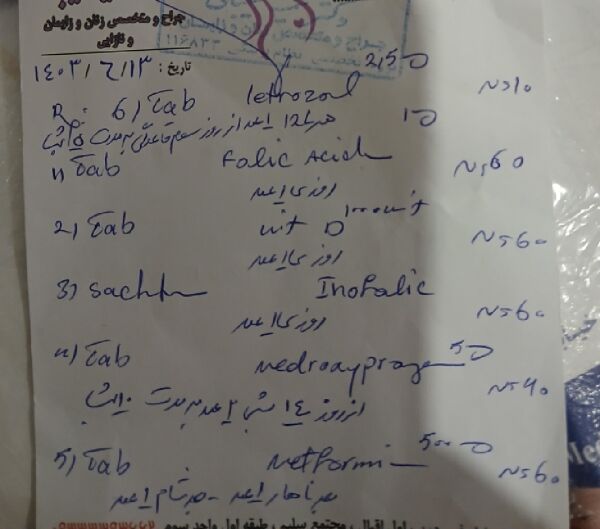 جراح و متخصص زنان و زایمان
و نازایی
۱۱۶۸۳۳
تاریخ : ۱۴۰۳/۶/۱۳
R: 6) Tab letrozol 2,5 N=10
هر ۱۲ عدد از روز سوم قاعدگی به مدت ۵ شب
1) Tab Folic Acid 1 N=60
روزی ۱ عدد
2) Tab vit D 1000 unit N=60
روزی ۱ عدد
3) Sachet Inofolic N=60
روزی ۱ عدد
4) Tab medroxyproge 5 N=40
از روز ۱۴ شبی ۲ عدد به مدت ۱۰ شب
5) Tab metformin 500 N=60
بعد ناهار ۱ عدد - بعد شام ۱ عدد
مجتمع سلیم ، طبقه اول واحد سوم